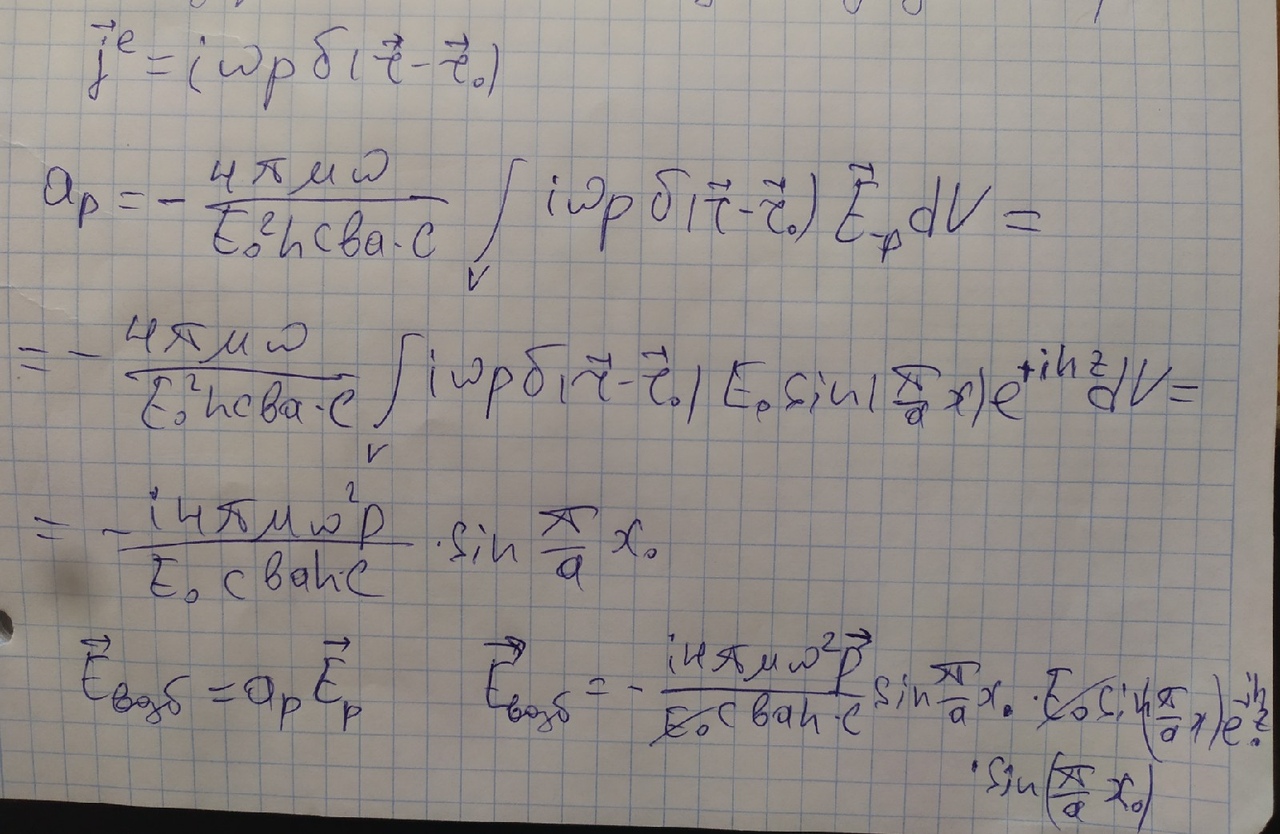 j⃗ᵉ = iωp δ(r⃗ - r⃗₀)
aₚ = - 4πμω / E₀²hcвa·c ∫_V iωp δ(r⃗ - r⃗₀) E⃗₋ₚ dV =
= - 4πμω / E₀²hcвa·c ∫_V iωp δ(r⃗ - r⃗₀) E₀ sin(π/a x) e^{+ihz} dV =
= - i4πμω²p / E₀cвah·c · sin π/a x₀
E⃗возб = aₚ E⃗ₚ E⃗возб = - i4πμω²p⃗ / E₀cвah·c sin π/a x₀ · E₀ sin(π/a x) e^{-ihz} ·
· sin(π/a x₀)